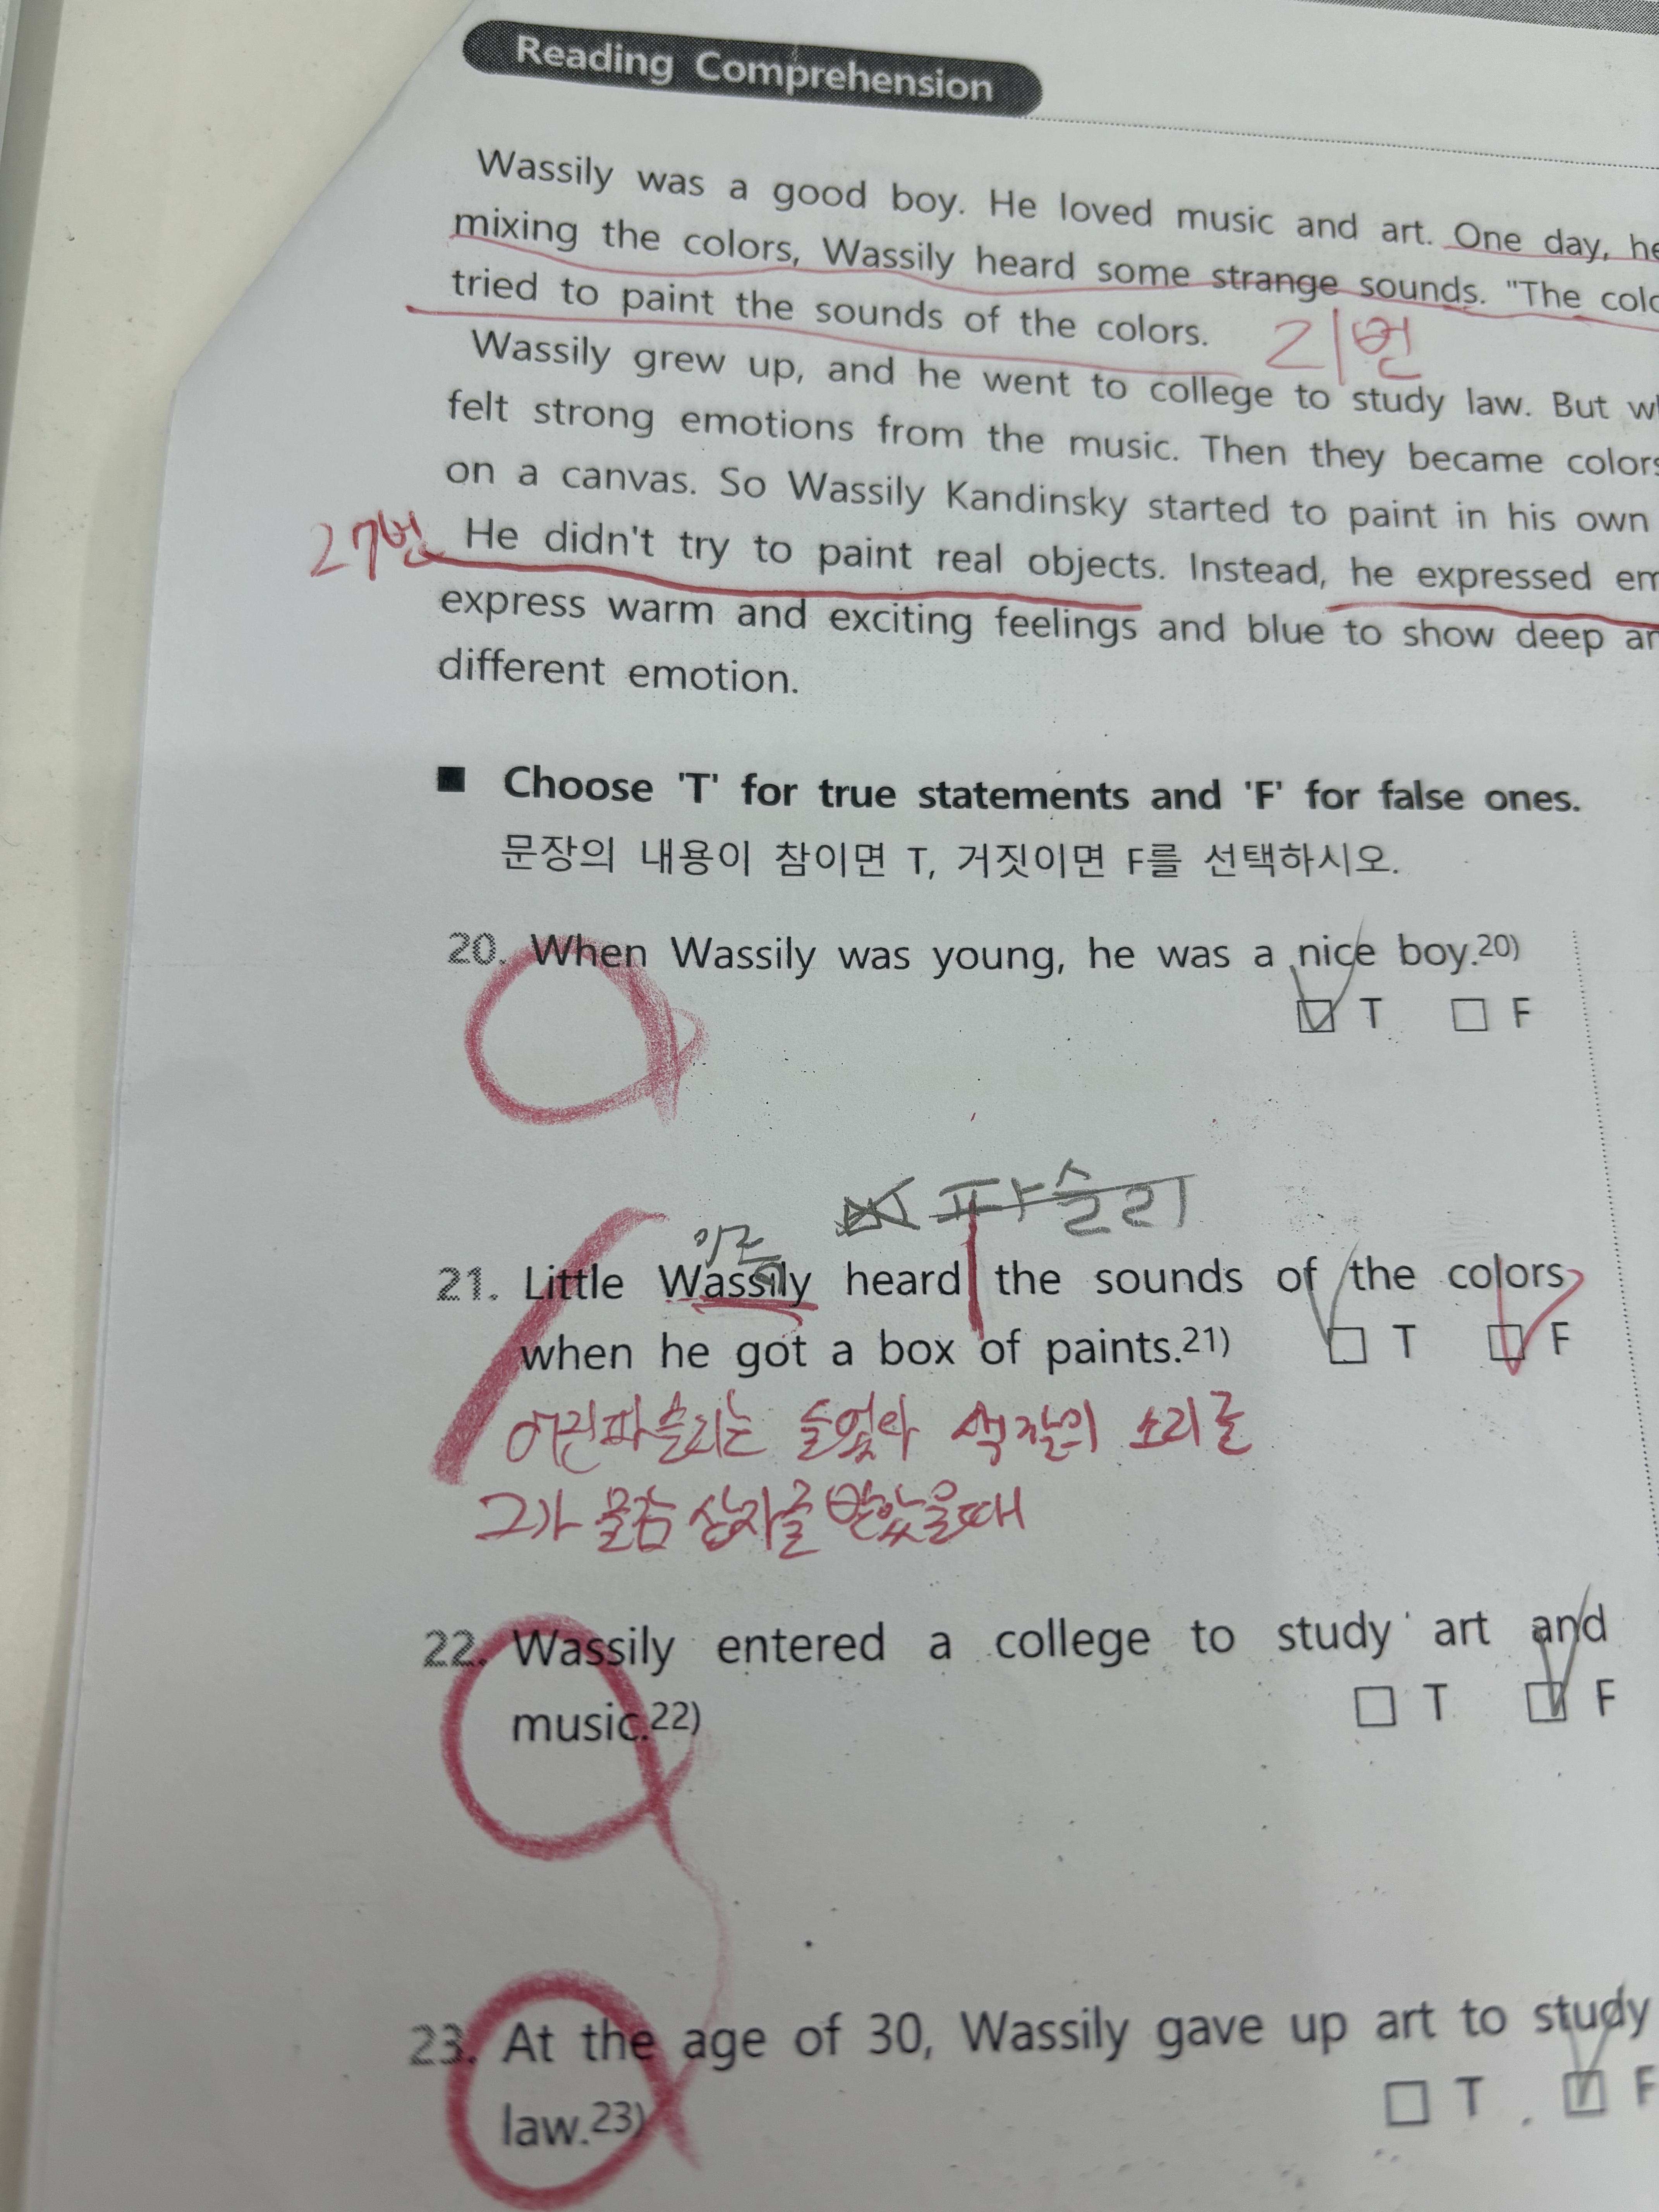 Reading Comprehension
Wassily was a good boy. He loved music and art. One day, he
mixing the colors, Wassily heard some strange sounds. "The
tried to paint the sounds of the colors.
21번
Wassily grew up, and he went to college to study law. But
felt strong emotions from the music. Then they became colors
on a canvas. So Wassily Kandinsky started to paint in his own
27번
He didn't try to paint real objects. Instead, he expressed
express warm and exciting feelings and blue to show deep
different emotion.
■ Choose 'T' for true statements and 'F' for false ones.
문장의 내용이 참이면 T, 거짓이면 F를 선택하시오.
20. When Wassily was young, he was a nice boy.20)
T F
파슬리
이름
21. Little Wassily heard the sounds of the colors
when he got a box of paints.21) T F
어린파슬리는 들었다 색깔의 소리를
그가 물감 상자를 받았을때
22. Wassily entered a college to study art and
music.22) T F
23. At the age of 30, Wassily gave up art to study
law.23) T F